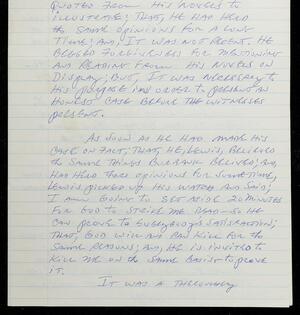 QUOTED FROM HIS NOVELS TO
ILLUSTRATE; THAT, HE HAD HELD
THE SAME OPINIONS FOR A LONG
TIME; AND, IT WAS NOT RECENT. HE
BEGGED FORGIVENESS FOR MENTIONING
AND READING FROM HIS NOVELS ON
DISPLAY; BUT, IT WAS NECESSARY TO
HIS PURPOSE IN ORDER TO PRESENT AN
HONEST CASE BEFORE THE WITNESSES
PRESENT.
AS SOON AS HE HAD MADE HIS
CASE ON FACT, THAT, HE, LEWIS, BELIEVED
THE SAME THINGS BURBANK BELIEVED; AND,
HAD HELD THESE OPINIONS FOR SOMETIME,
LEWIS PICKED UP HIS WATCH AND SAID;
I AM GOING TO SET ASIDE 20 MINUTES
FOR GOD TO STRIKE ME DEAD SO HE
CAN PROVE TO EVERYBODY'S SATISFACTION;
THAT, GOD WILL AND CAN KILL FOR THE
SAME REASONS; AND, HE IS INVITED TO
KILL ME ON THE SAME BASIS TO PROVE
IT.
IT WAS A THOROUGHLY